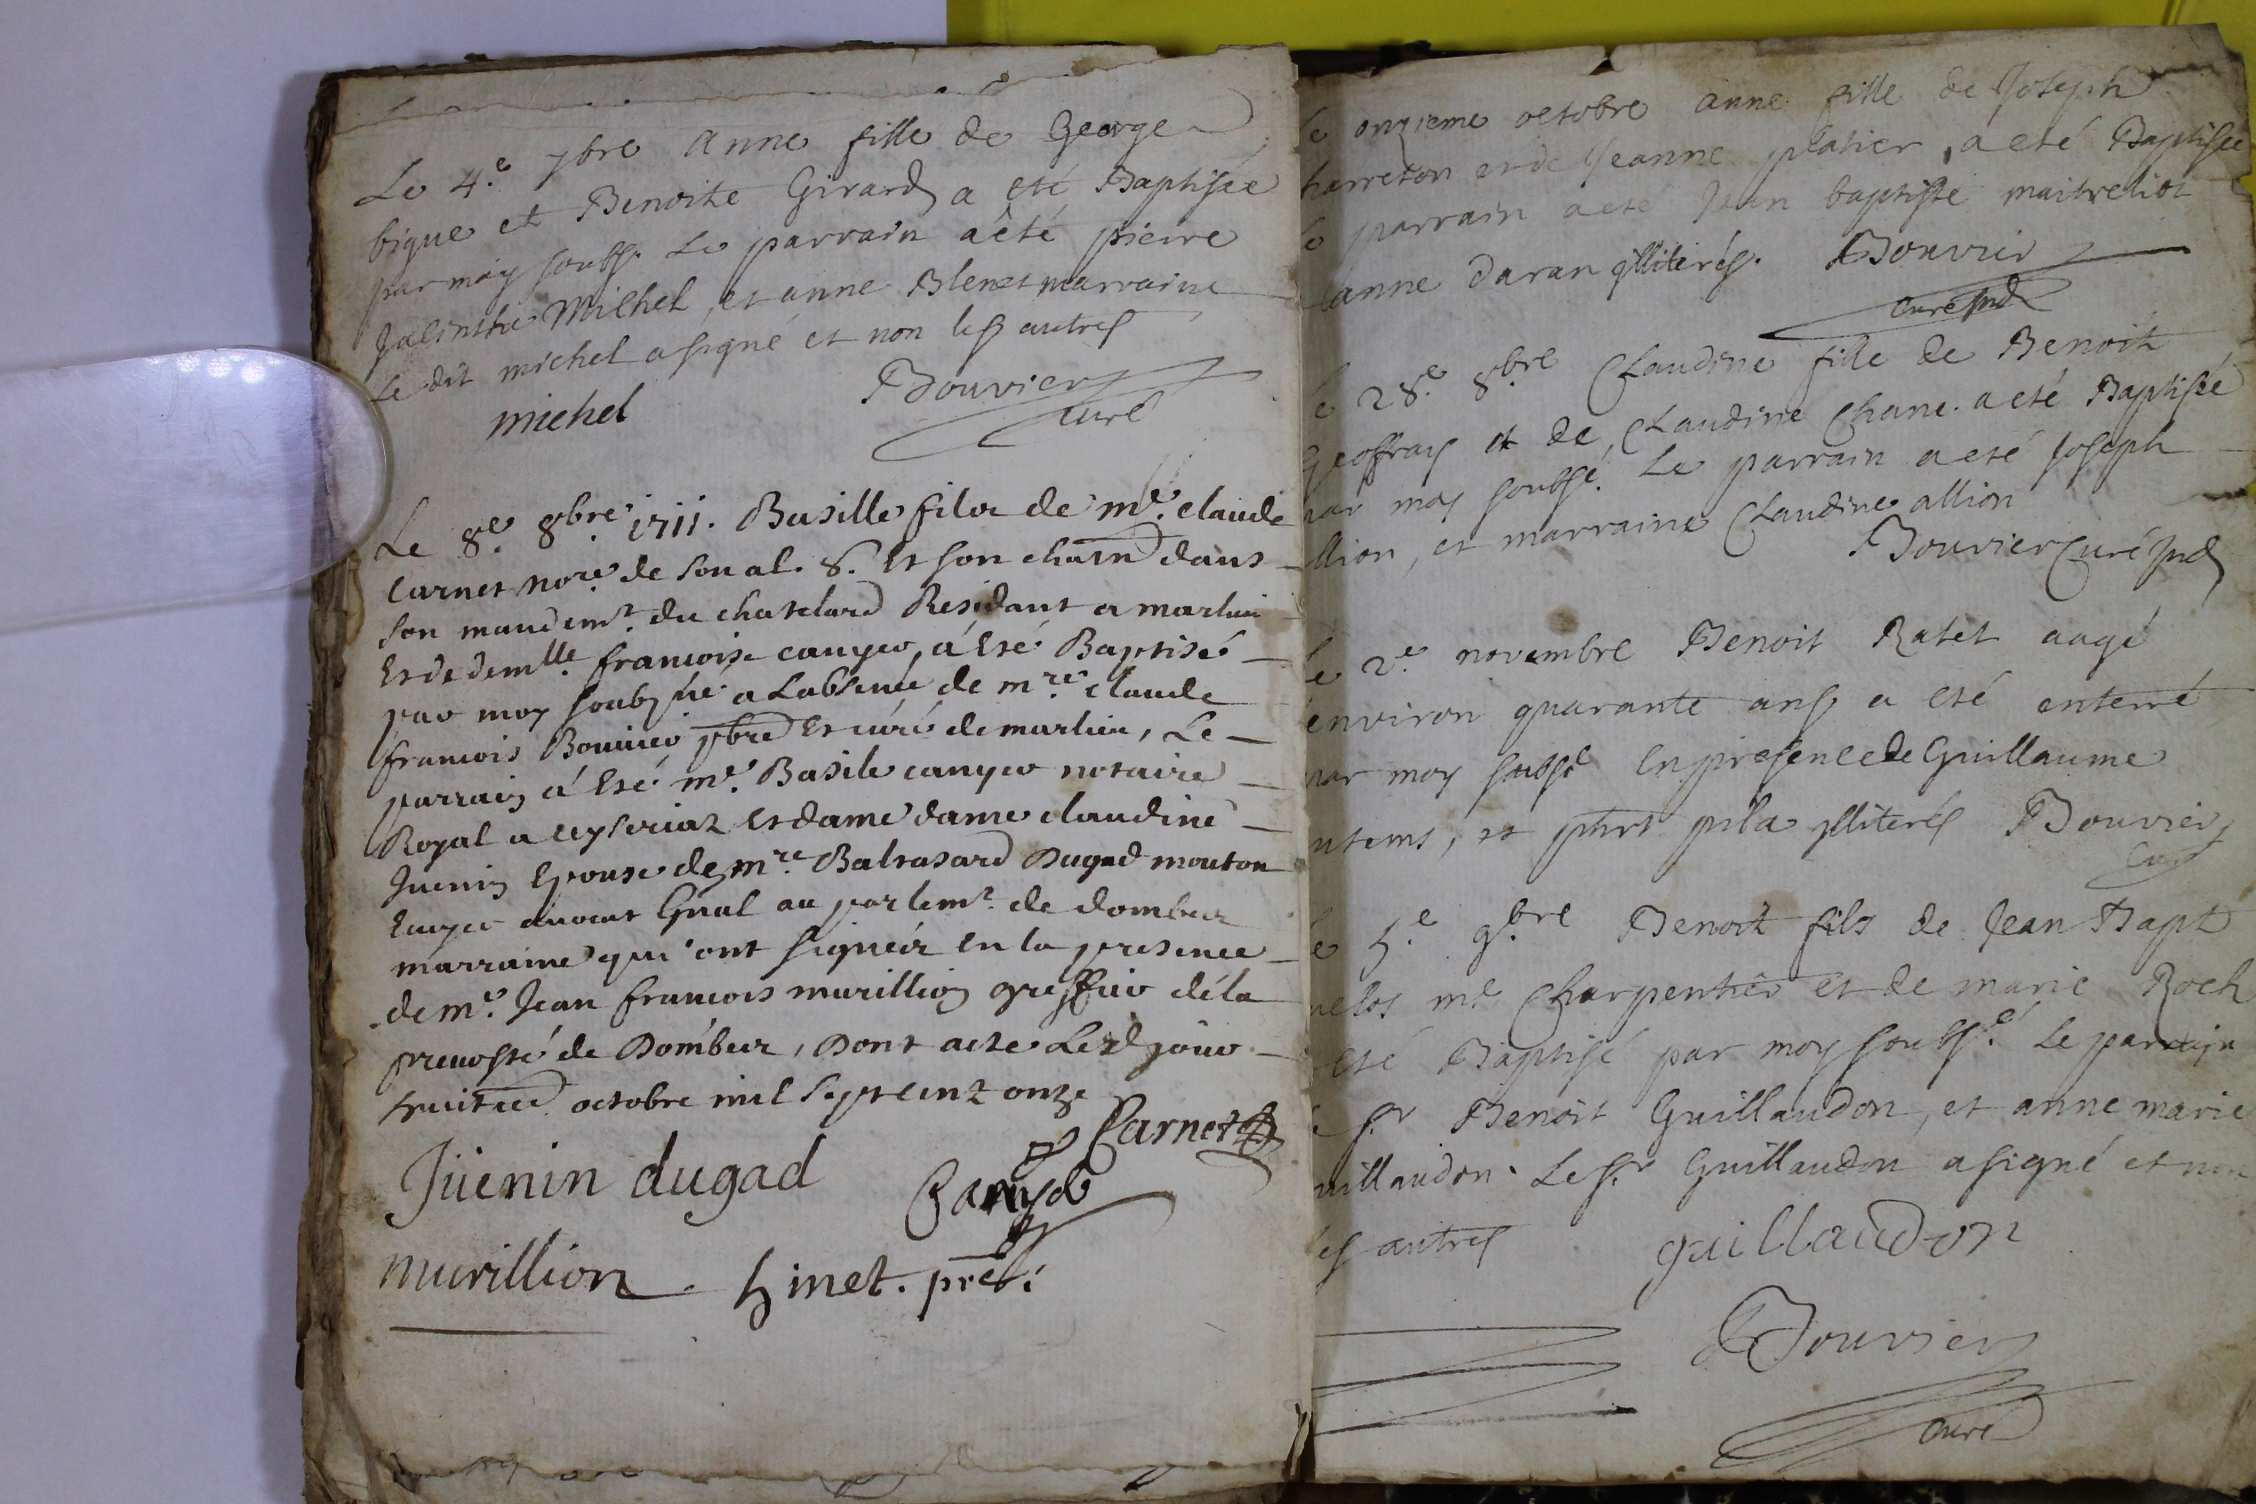 Le 4.e 7bre Anne fille de George
bigue et Benoite Girard a eté Baptisée
par moy soubs. Le parrain a été pierre
Jacinthe Michel, et anne Blenet marraine
Le dit michel a signé et non les autres
michel Bouvier
curé
Le 8.e 8bre 1711. Basille filz de me. claude
Carnet nore. de son al. S. Et son chatn dans
son mandemt. du chatelard Residant a marlieu
Et de demlle francoise canyer, a Eté Baptisé
par moy soubzne a Labsence de mre. claude
francois Bouvier pbre Et curé de marlieu, Le
parrain a Eté me. Basile canyer notaire
Royal a ceyseriaz Et dame dame claudine
Juenin Epouse de mre. Baltasard Dugad mouton
Enyer avocat Gnal au parlemt. de dombes
marraine qui ont signéz en la presence
de me. Jean francois murillion greffier de la
prevosté de Dombes, Dont acte Led jour
huitie octobre mil sept cent onze
Carnet
Juenin dugad Canyer
murillion binet. pre.
Le onzieme octobre anne fille de Joseph
charreton et de Jeanne platier, a eté Baptisée
le parrain a eté Jean baptiste maitreliot
anne daran illiterés. Bouvier
curé
le 28.e 8bre Claudine fille de Benoit
Geoffray et de Claudine Chane. a eté Baptisée
par moy soubsé. Le parrain a eté Joseph
allion, et marraine Claudine allion
Bouvier Curé
le 2.e novembre Benoit Ratet aagé
environ quarante ans a eté enterré
par moy soubsé en presence de Guillaume
et pila illiterés Bouvier
Curé
le 5.e 9bre Benoit fils de Jean Bapt
me Charpentier et de marie Roch
eté Baptisé par moy soubsé. le parrain
le sr Benoit Guillaudon, et anne marie
guillaudon. Le sr. Guillaudon a signé et non
les autres guillaudon
Bouvier
curé